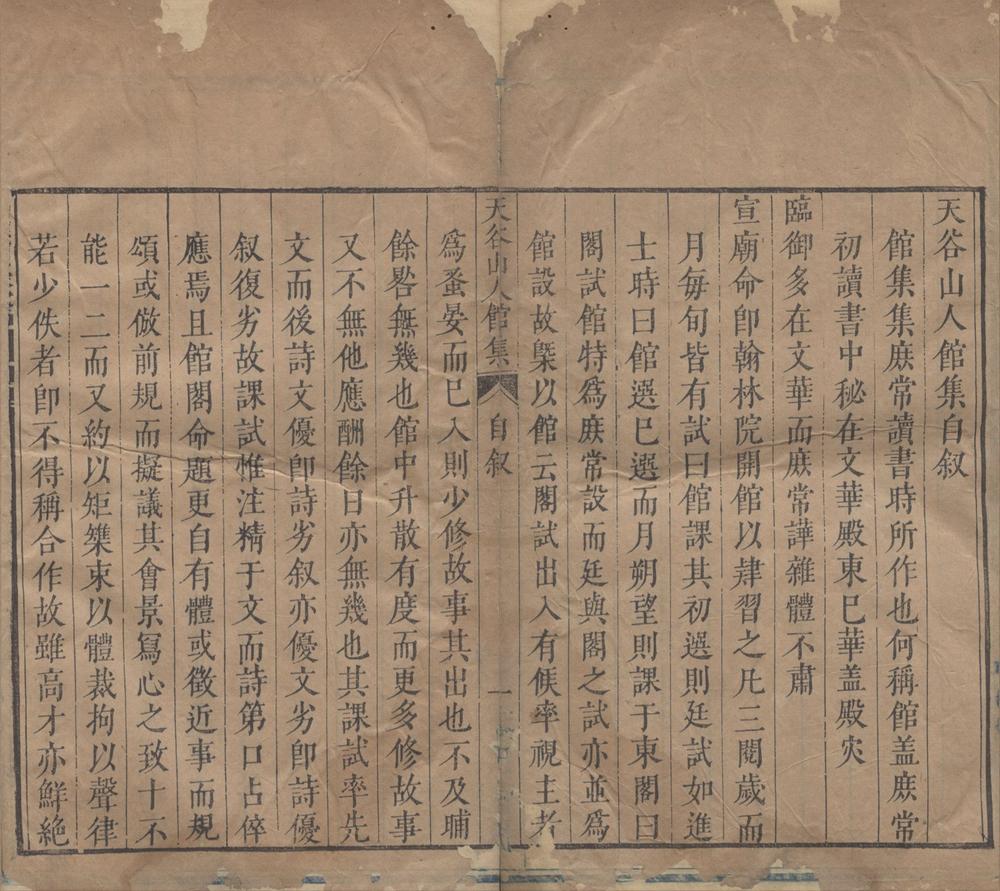 天谷山人館集自叙
館集集庻常讀書時所作也何稱館盖庻常
初讀書中秘在文華殿東巳華盖殿灾
臨御多在文華而庻常譁雜體不肅
宣廟命卽翰林院開館以肄習之凡三閱歲而
月毎旬皆有試曰館課其初選則廷試如進
士時曰館選巳選而月朔望則課于東閣曰
閣試館特爲庻常設而廷與閣之試亦並爲
館設故槩以館云閣試出入有候率視主者
天谷山人館集
自叙
一
爲蚤晏而巳入則少修故事其出也不及晡
餘晷無幾也館中升散有度而更多修故事
又不無他應酬餘日亦無幾也其課試率先
文而後詩文優卽詩劣叙亦優文劣卽詩優
叙復劣故課試惟注精于文而詩第口占倅
應焉且館閣命題更自有體或徵近事而規
頌或倣前規而擬議其會景寫心之致十不
能一二而又約以矩榘束以體裁拘以聲律
若少佚者卽不得稱合作故雖高才亦鮮絶